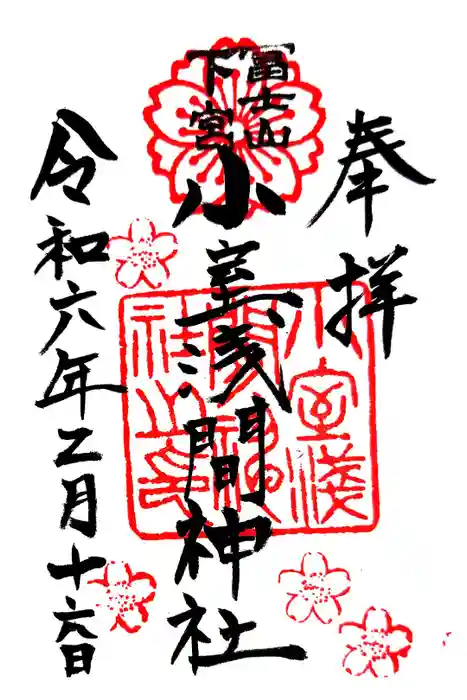 奉拝
富士山
下宮
小室浅間神社
令和六年二月十六日
小室淺
間神
社之印